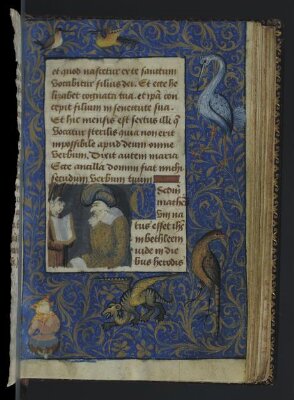 et quod nascetur ex te sanctum
vocabitur filius dei. Et ecce he
lizabet cognata tua. et ipa con
cepit filium in senectute sua.
Et hic mensis est sextus illi q
vocatur sterilis quia non erit
impossibile apud deum omne
verbum. Dixit autem maria
Ecce ancilla domini fiat michi
secundum verbum tuum
Secdm
matheu
Cum na
tus esset ihs
in bethleem
iude in die
bus herodis